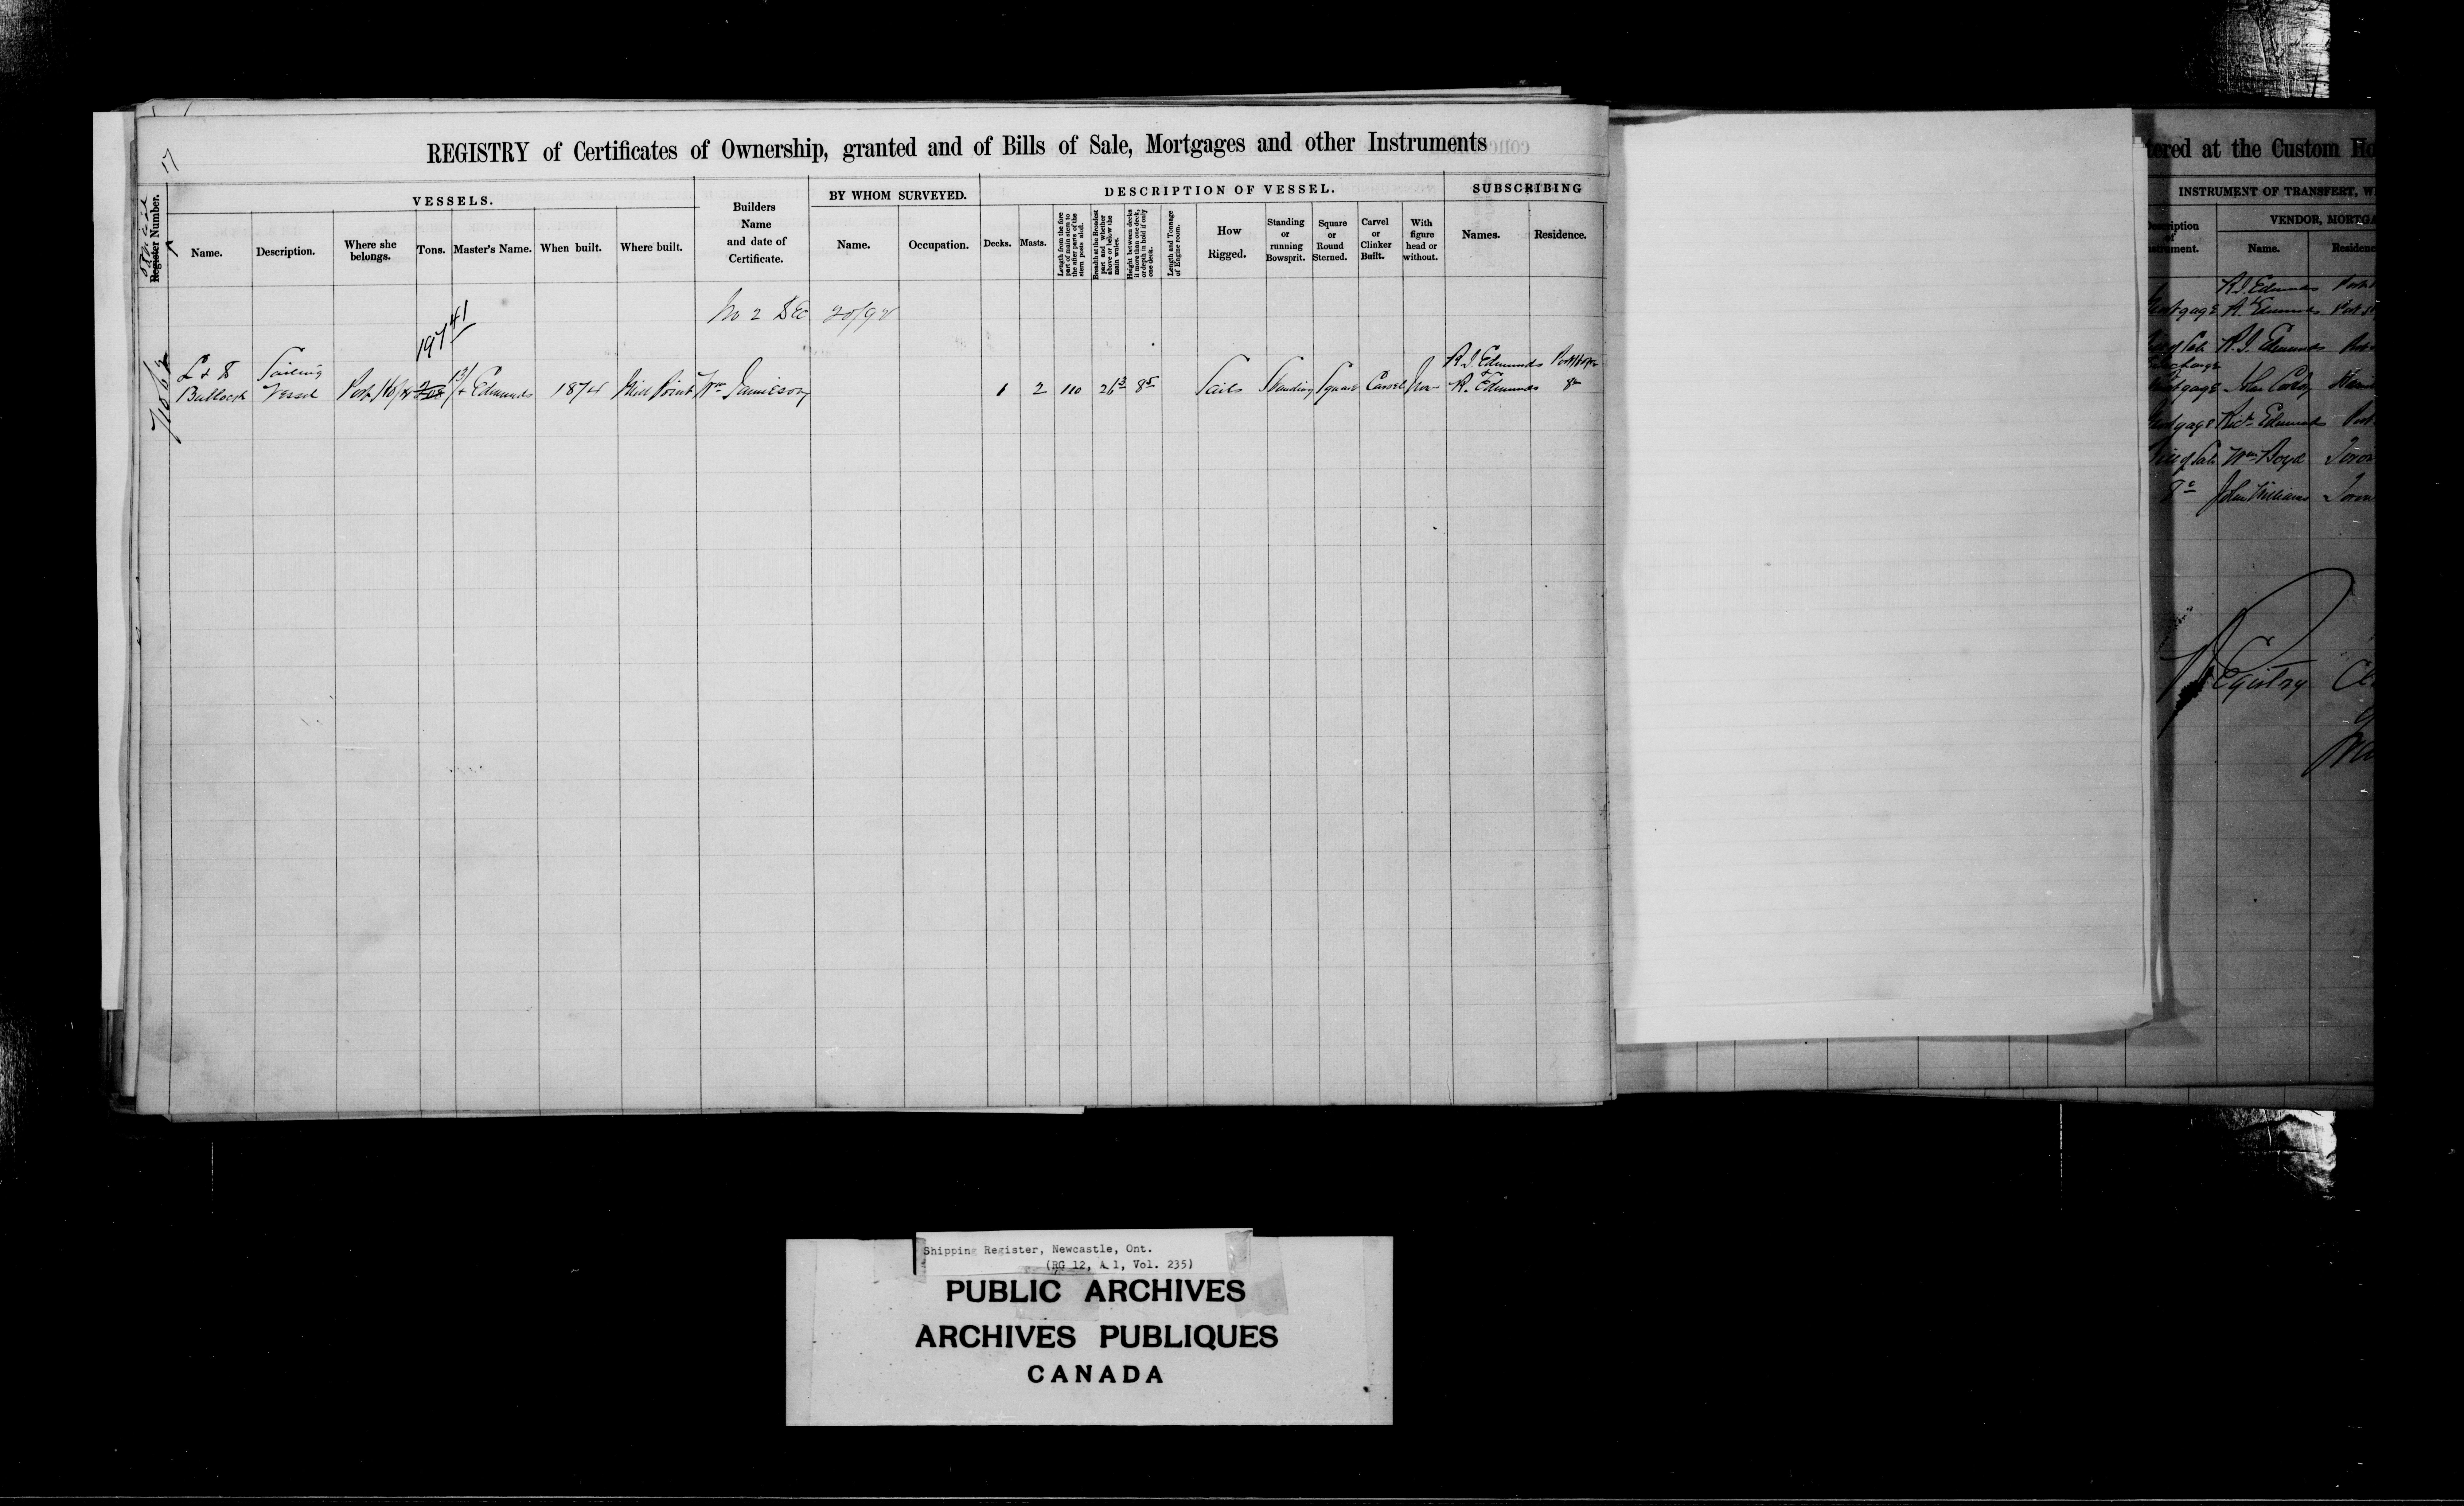 17
REGISTRY of Certificates of Ownership, granted and of Bills of Sale, Mortgages and other Instruments
Official
Register Number.
VESSELS.
Name.
Description.
Where she
belongs.
Tons.
Master's Name.
When built.
Where built.
Builders
Name
and date of
Certificate.
BY WHOM SURVEYED.
Name.
Occupation.
DESCRIPTION OF VESSEL.
Decks.
Masts.
Length from the fore
part of main stem to
the after parts of the
stern posts aloft.
Breadth at the Broadest
part and whether
above or below the
main wales.
Height between decks
if more than one deck,
or depth in hold if only
one deck.
Length and Tonnage
of Engine room.
How
Rigged.
Standing
or
running
Bowsprit.
Square
or
Round
Sterned.
Carvel
or
Clinker
Built.
With
figure
head or
without.
SUBSCRIBING
Names.
Residence.
No 2 Dec 20/98
197 41
L & D
Bullock
Sailing
Vessel
Port Hope
Edmunds
1874
Mill Point
Wm Jamieson
1
2
110
26 3
8 5
Sails
Standing
Square
Carvel
R I Edmunds
&
R. Edmunds
Port Hope
Do
tered at the Custom Ho
INSTRUMENT OF TRANSFERT, W
Description
of
strument.
VENDOR, MORTGA
Name.
Residenc
R I. Edmunds
Mortgage
Edmunds
Bill of Sale R. I. Edmunds
Discharge
Mortgage John
Mortgage Richd Edmunds
Bill of Sale Wm Boyd
Do John Williams
Registry
Shipping Register, Newcastle, Ont.
(RG 12, A 1, Vol. 235)
PUBLIC ARCHIVES
ARCHIVES PUBLIQUES
CANADA